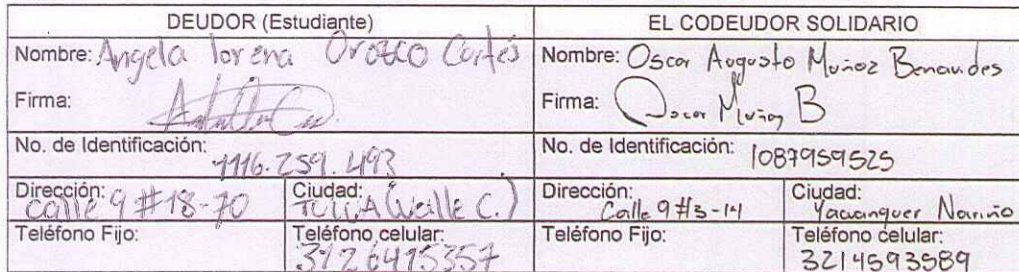 DEUDOR (Estudiante)
Nombre: Angela lorena Orozco Cortés
Firma:
No. de Identificación: 1116.259.493
Dirección: calle 9 #18-70
Ciudad: TULUA (Valle C.)
Teléfono Fijo:
Teléfono celular: 3126415357
EL CODEUDOR SOLIDARIO
Nombre: Oscar Augusto Muñoz Benavides
Firma: Oscar Muñoz B
No. de Identificación: 1087959525
Dirección: Calle 9 #3-14
Ciudad: Yacuanquer Nariño
Teléfono Fijo:
Teléfono celular: 3214593589